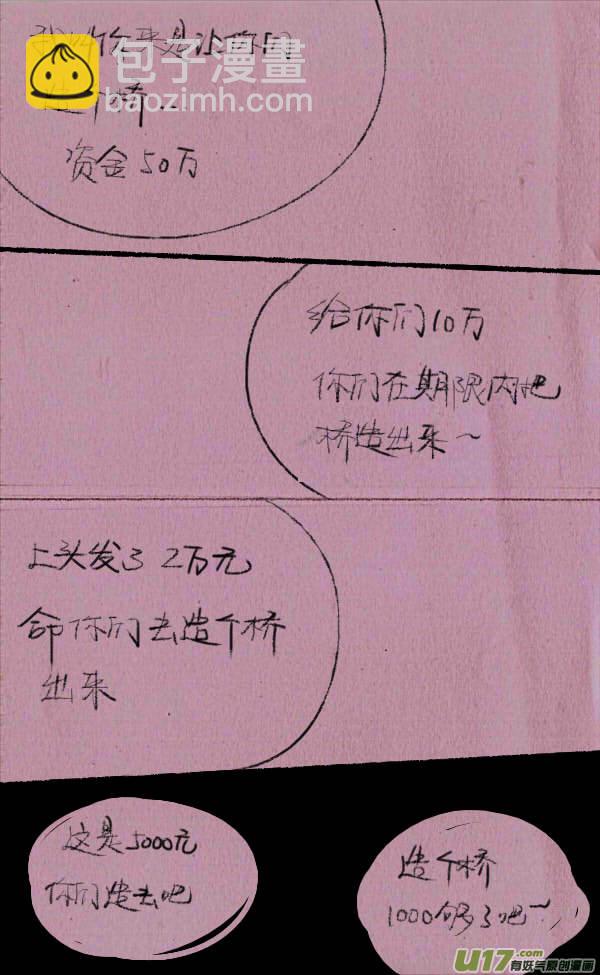 我叫你来是让你们
包子漫畫
baozimh.com
造个桥～
资金50万
给你们10万
你们在期限内把
桥造出来～
上头发了2万元
命你们去造个桥
出来
这是5000元
你们造去吧
造个桥
1000够了吧~
U17.com
有妖气原创漫画